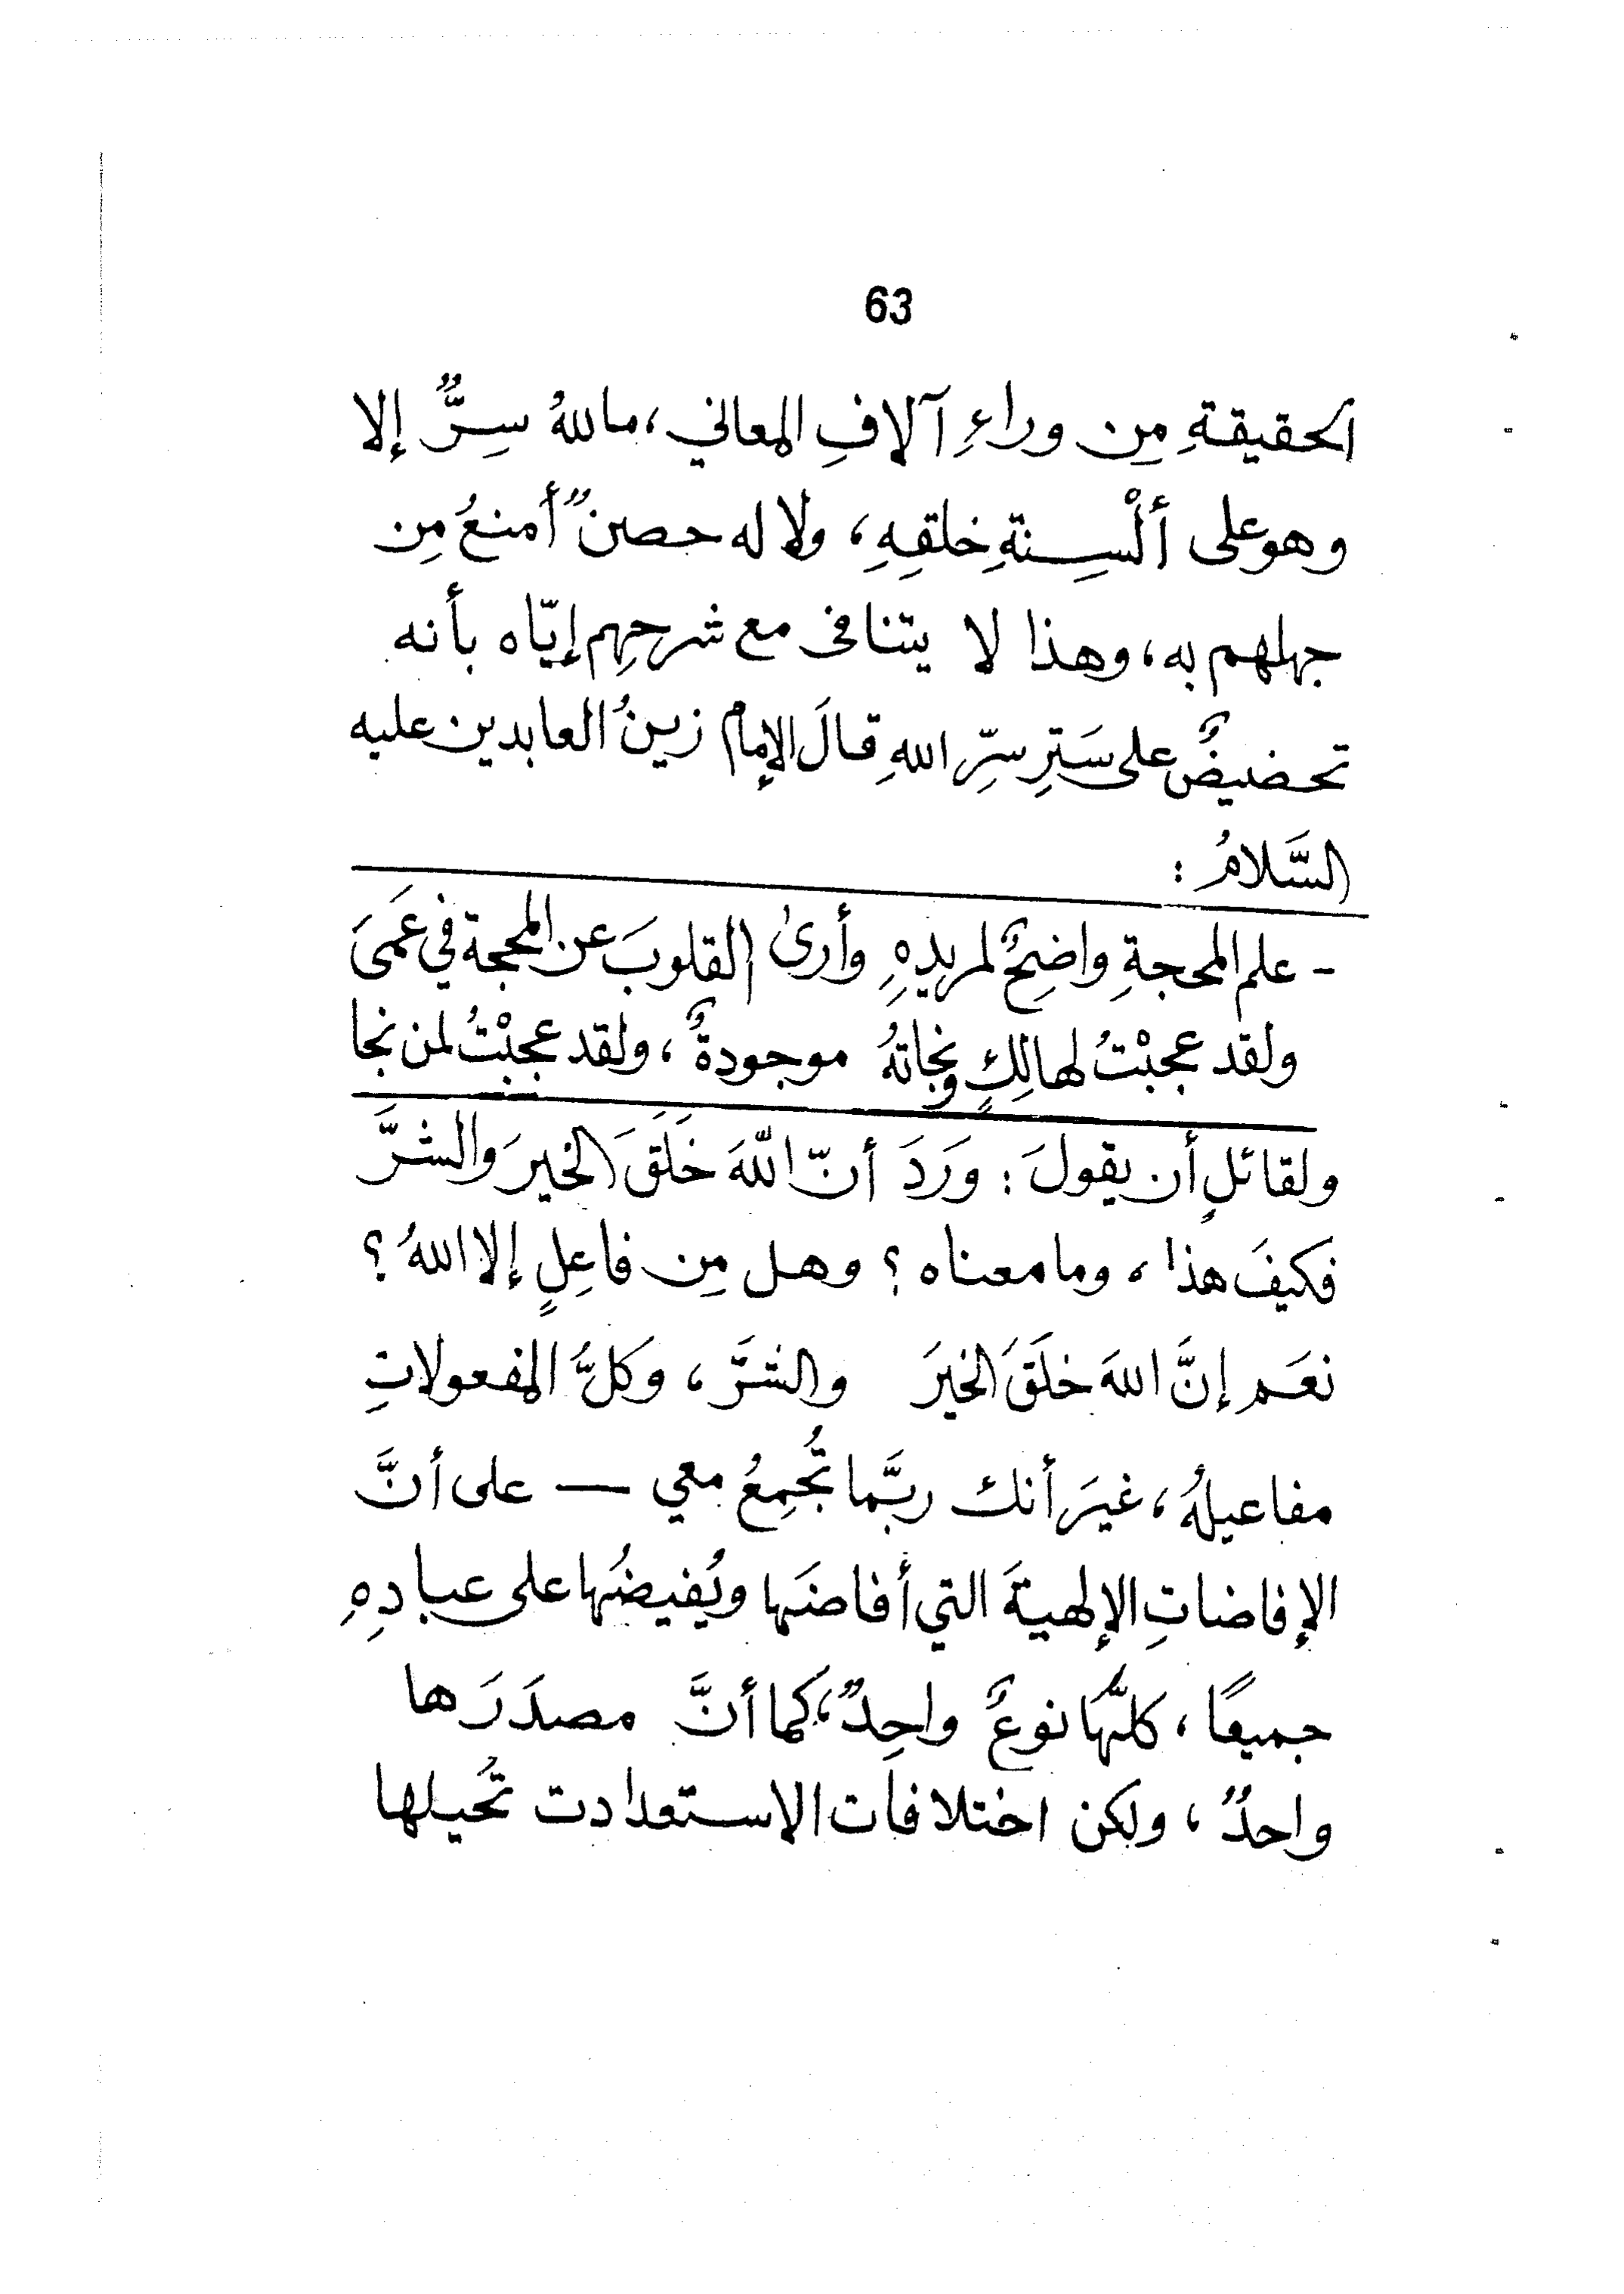 63
الحقيقةِ مِن وراءِ آلافِ المعاني، مالله سِرٌّ إلا
وهو على ألْسِنةِ خلقِهِ، ولا له حصنٌ أمنعُ مِن
جهلهم به، وهذا لا يتنافى مع شرحِهم إيّاه بأنه
تحضيضٌ على سَترِ سرِّ اللهِ قالَ الإمامُ زينُ العابدين عليه
السَّلامُ :
- علم المحجةِ واضِحٌ لمريدِهِ وأرىٰ القلوبَ عن المحجة في عَمَىَ
ولقد عجبْتُ لهالِكٍ ونجاتهُ موجودةٌ، ولقد عجبْتُ لمن نجا
ولقائلٍ أن يقولَ : وَرَدَ أنّ اللّهَ خَلَقَ الخيرَ والشرَّ
فكيفَ هذا، وما معناه ؟ وهل مِن فاعِلٍ إلا اللهُ ؟
نعَم إنَّ اللهَ خلَقَ الخيرَ والشرَّ، وَكلُّ المفعولاتِ
مفاعيلهُ، غيرَ أنك ربَّما تُجمِعُ معي — على أنَّ
الإفاضاتِ الإلهيةَ التي أفاضَها ويُفيضُها على عبادِهِ
جميعًا، كلُّهَا نوعٌ واحِدٌ، كما أنَّ مصدَرَها
واحدٌ، ولكن اختلافات الاستعدادت تُحيلها